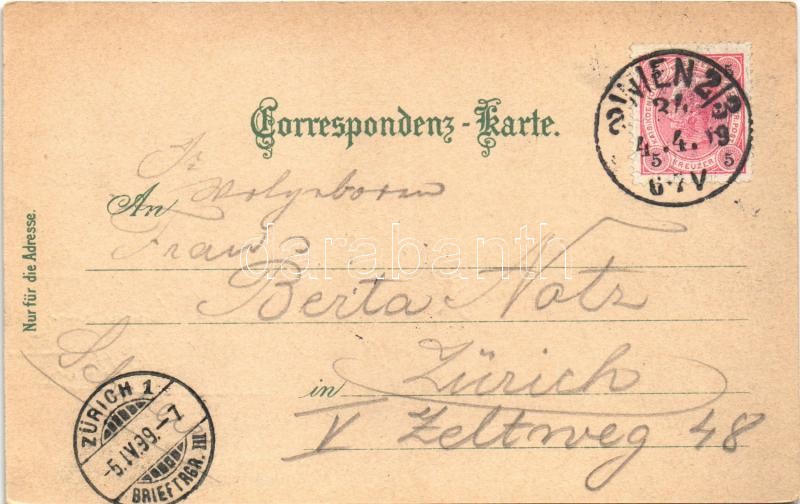 Correspondenz-Karte.
WIEN 2/3
4.4.99
6-7V
KREUZER
5 5
Wolgeboren
An
Frau
Berta Notz
in Zürich
V Zeltweg 48
Nur für die Adresse.
ZÜRICH 1
-5.IV.99.-7
BRIEFTRGR. III
darabanth